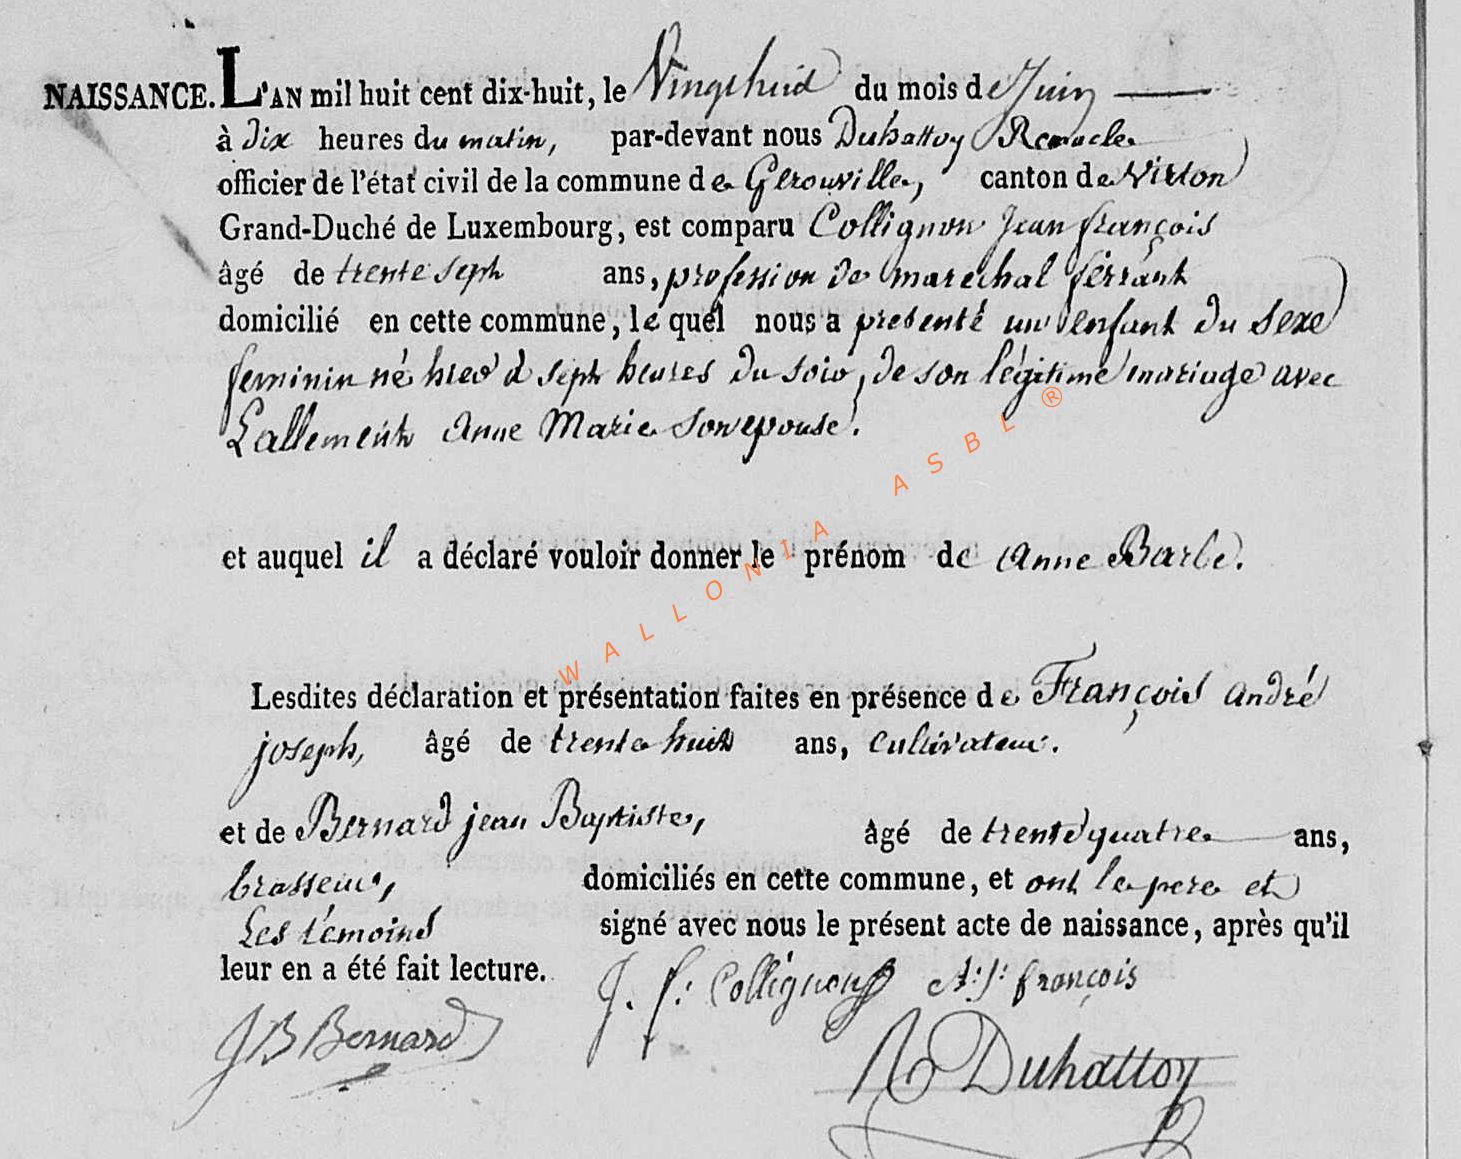 NAISSANCE. L'AN mil huit cent dix-huit, le Vingt huit du mois de Juin
à dix heures du matin, par-devant nous Duhattoy Remacle
officier de l'état civil de la commune de Gerouville, canton de Virton
Grand-Duché de Luxembourg, est comparu Collignon Jean françois
âgé de trente sept ans, profession de marechal ferrant
domicilié en cette commune, le quel nous a presenté un enfant du sexe
feminin né hier à sept heures du soir, de son légitime mariage avec
Lallement Anne Marie son epouse.
et auquel il a déclaré vouloir donner le prénom de Anne Barbe.
Lesdites déclaration et présentation faites en présence de François André
joseph, âgé de trente huit ans, cultivateur.
et de Bernard jean Baptiste, âgé de trente quatre ans,
brasseur, domiciliés en cette commune, et ont le pere et
Les témoins signé avec nous le présent acte de naissance, après qu'il
leur en a été fait lecture. J. f. Collignon A: J: françois
JB Bernard
R Duhattoy
WALLONIA ASBL ®